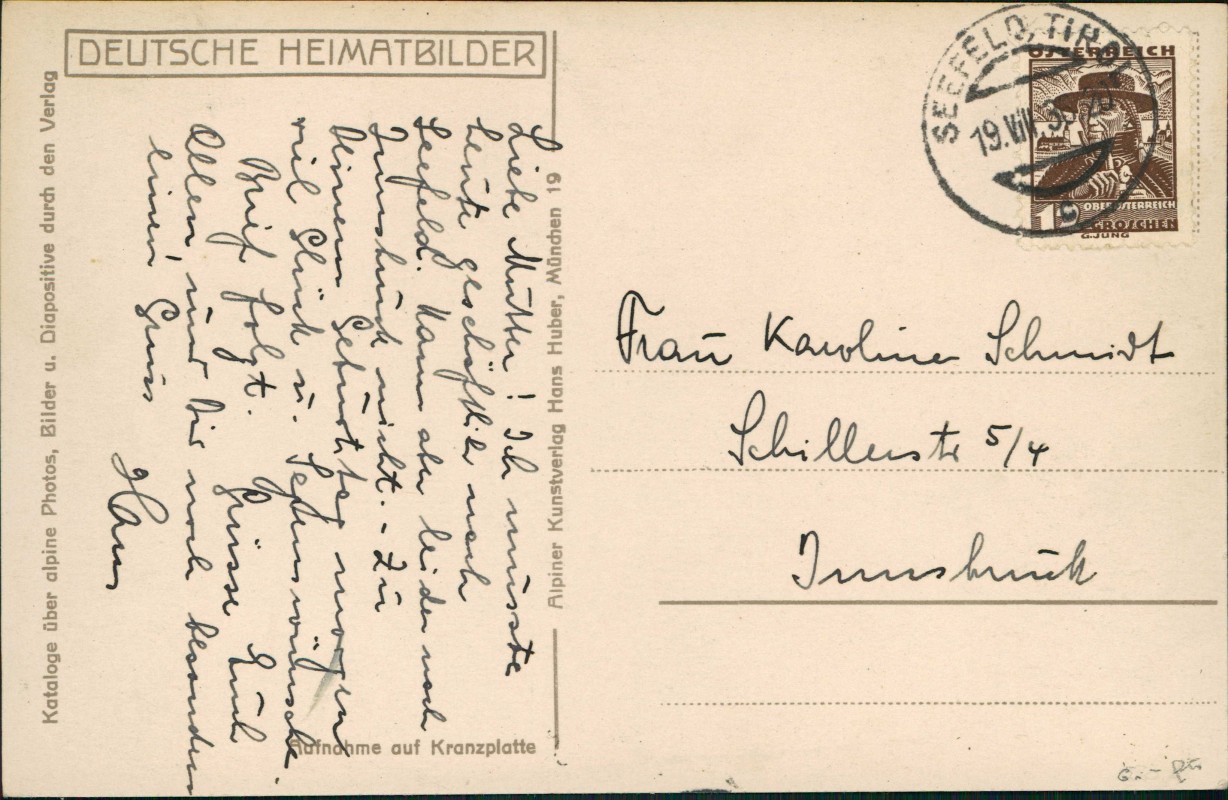 DEUTSCHE HEIMATBILDER
Kataloge über alpine Photos, Bilder u. Diapositive durch den Verlag
Liebe Mutter! Ich musste
heute geschäftlich nach
Seefeld. Kann aber leider nach
Innsbruck nicht. - Zu
Deinem Geburtstag morgen
viel Glück u. Segenswünsche.
Brief folgt. Grüsse Euch
Allen und Dir noch besonders
einen Gruss
Hans
Alpiner Kunstverlag Hans Huber, München 19
Aufnahme auf Kranzplatte
SEEFELD, TIROL
19.VIII.3
ÖSTERREICH
OBERÖSTERREICH
GROSCHEN
G.JUNG
Frau Karoline Schmidt
Schillerstr 5/4
Innsbruck
6.-